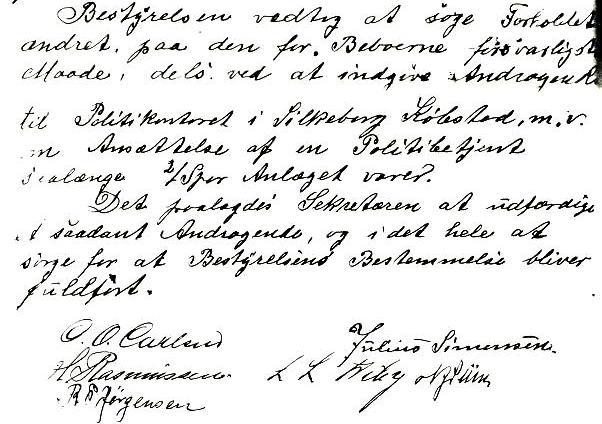 Bestyrelsen vedtog at søge Forholdet
ændret paa den for Beboerne forsvarligst
Maade, dels ved at indgive Andragende
til Politikontoret i Silkeborg Købstad, m. v.
om Ansættelse af en Politibetjent
saalænge Spor Anlæget varer.
Det paalagdes Sekretæren at udfærdige
et saadant Andragende, og i det hele at
sørge for at Bestyrelsens Bestemmelse bliver
fuldført.
C. O. Carlsen
Julius Simonsen.
H Rasmussen.
L L Wiby
R P Jørgensen